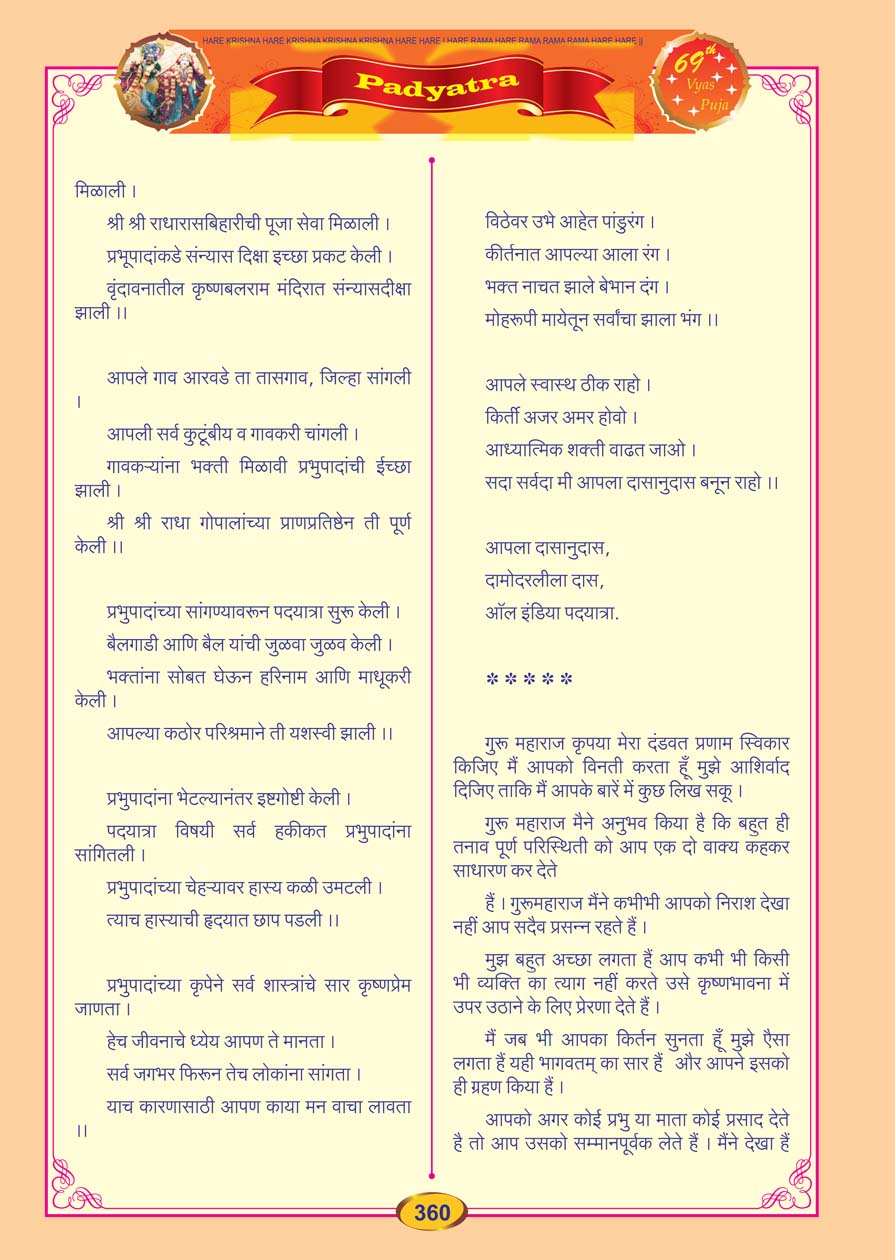 HARE KRISHNA HARE KRISHNA KRISHNA KRISHNA HARE HARE | HARE RAMA HARE RAMA RAMA RAMA HARE HARE ||
Padyatra
69th
Vyas
Puja
मिळाली ।
श्री श्री राधारासबिहारीची पूजा सेवा मिळाली ।
प्रभूपादांकडे संन्यास दिक्षा इच्छा प्रकट केली ।
वृंदावनातील कृष्णबलराम मंदिरात संन्यासदीक्षा
झाली ।।
आपले गाव आरवडे ता तासगाव, जिल्हा सांगली
।
आपली सर्व कुटूंबीय व गावकरी चांगली ।
गावकऱ्यांना भक्ती मिळावी प्रभुपादांची ईच्छा
झाली ।
श्री श्री राधा गोपालांच्या प्राणप्रतिष्ठेन ती पूर्ण
केली ।।
प्रभुपादांच्या सांगण्यावरून पदयात्रा सुरू केली ।
बैलगाडी आणि बैल यांची जुळवा जुळव केली ।
भक्तांना सोबत घेऊन हरिनाम आणि माधूकरी
केली ।
आपल्या कठोर परिश्रमाने ती यशस्वी झाली ।।
प्रभुपादांना भेटल्यानंतर इष्टगोष्टी केली ।
पदयात्रा विषयी सर्व हकीकत प्रभुपादांना
सांगितली ।
प्रभुपादांच्या चेहऱ्यावर हास्य कळी उमटली ।
त्याच हास्याची हृदयात छाप पडली ।।
प्रभुपादांच्या कृपेने सर्व शास्त्रांचे सार कृष्णप्रेम
जाणता ।
हेच जीवनाचे ध्येय आपण ते मानता ।
सर्व जगभर फिरून तेच लोकांना सांगता ।
याच कारणासाठी आपण काया मन वाचा लावता
।।
विठेवर उभे आहेत पांडुरंग ।
कीर्तनात आपल्या आला रंग ।
भक्त नाचत झाले बेभान दंग ।
मोहरूपी मायेतून सर्वांचा झाला भंग ।।
आपले स्वास्थ ठीक राहो ।
किर्ती अजर अमर होवो ।
आध्यात्मिक शक्ती वाढत जाओ ।
सदा सर्वदा मी आपला दासानुदास बनून राहो ।।
आपला दासानुदास,
दामोदरलीला दास,
ऑल इंडिया पदयात्रा.
* * * * *
गुरू महाराज कृपया मेरा दंडवत प्रणाम स्विकार
किजिए मैं आपको विनती करता हूँ मुझे आशिर्वाद
दिजिए ताकि मैं आपके बारें में कुछ लिख सकू ।
गुरू महाराज मैने अनुभव किया है कि बहुत ही
तनाव पूर्ण परिस्थिती को आप एक दो वाक्य कहकर
साधारण कर देते
हैं । गुरूमहाराज मैंने कभीभी आपको निराश देखा
नहीं आप सदैव प्रसन्न रहते हैं ।
मुझ बहुत अच्छा लगता हैं आप कभी भी किसी
भी व्यक्ति का त्याग नहीं करते उसे कृष्णभावना में
उपर उठाने के लिए प्रेरणा देते हैं ।
मैं जब भी आपका किर्तन सुनता हूँ मुझे ऐसा
लगता हैं यही भागवतम् का सार हैं और आपने इसको
ही ग्रहण किया हैं ।
आपको अगर कोई प्रभु या माता कोई प्रसाद देते
है तो आप उसको सम्मानपूर्वक लेते हैं । मैंने देखा हैं
360